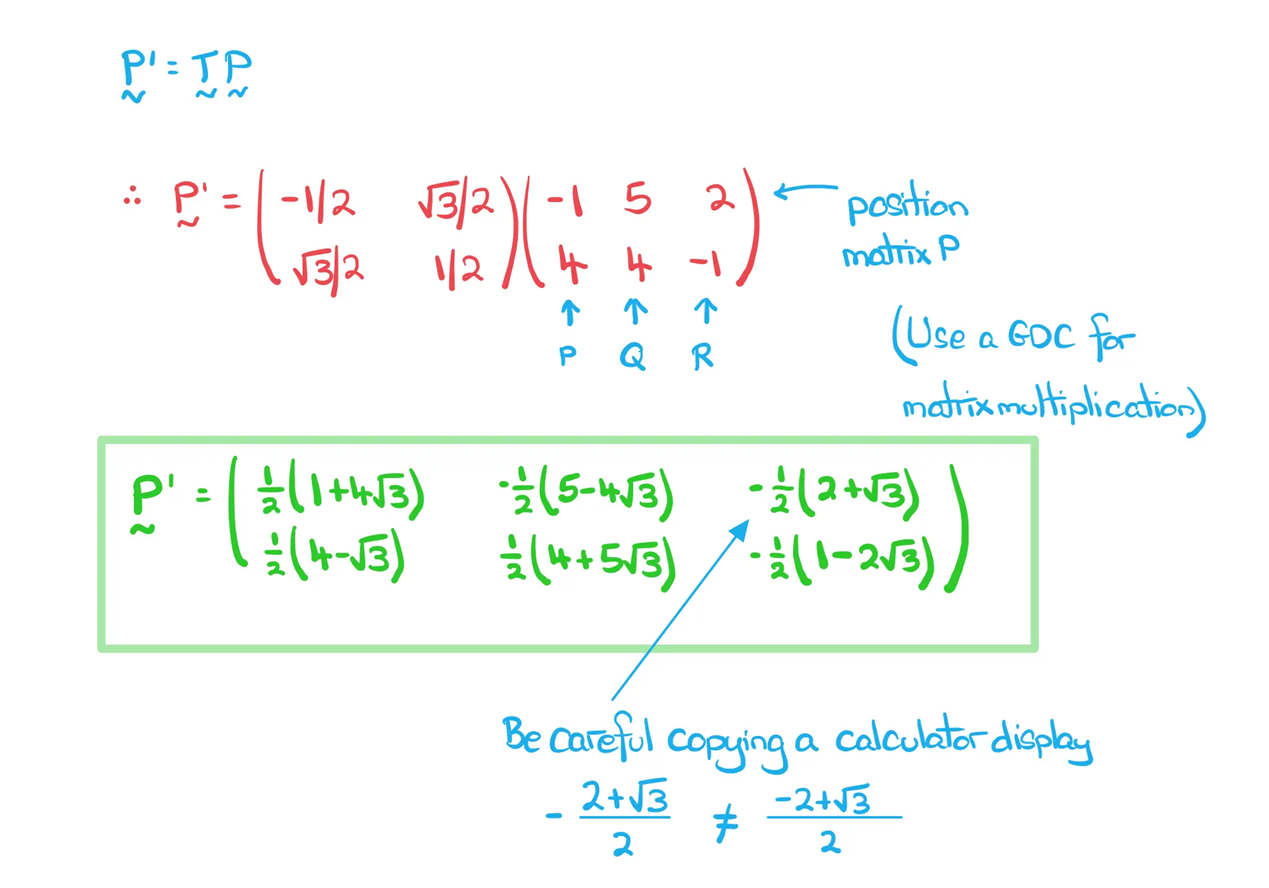 P' = TP
∴ P' = ( -1/2 √3/2 ) ( -1 5 2 ) ← position
( √3/2 1/2 ) ( 4 4 -1 ) matrix P
↑ ↑ ↑
P Q R
(Use a GDC for
matrix multiplication)
P' = ( ½(1+4√3) -½(5-4√3) -½(2+√3) )
( ½(4-√3) ½(4+5√3) -½(1-2√3) )
Be careful copying a calculator display
- (2+√3)/2 ≠ (-2+√3)/2